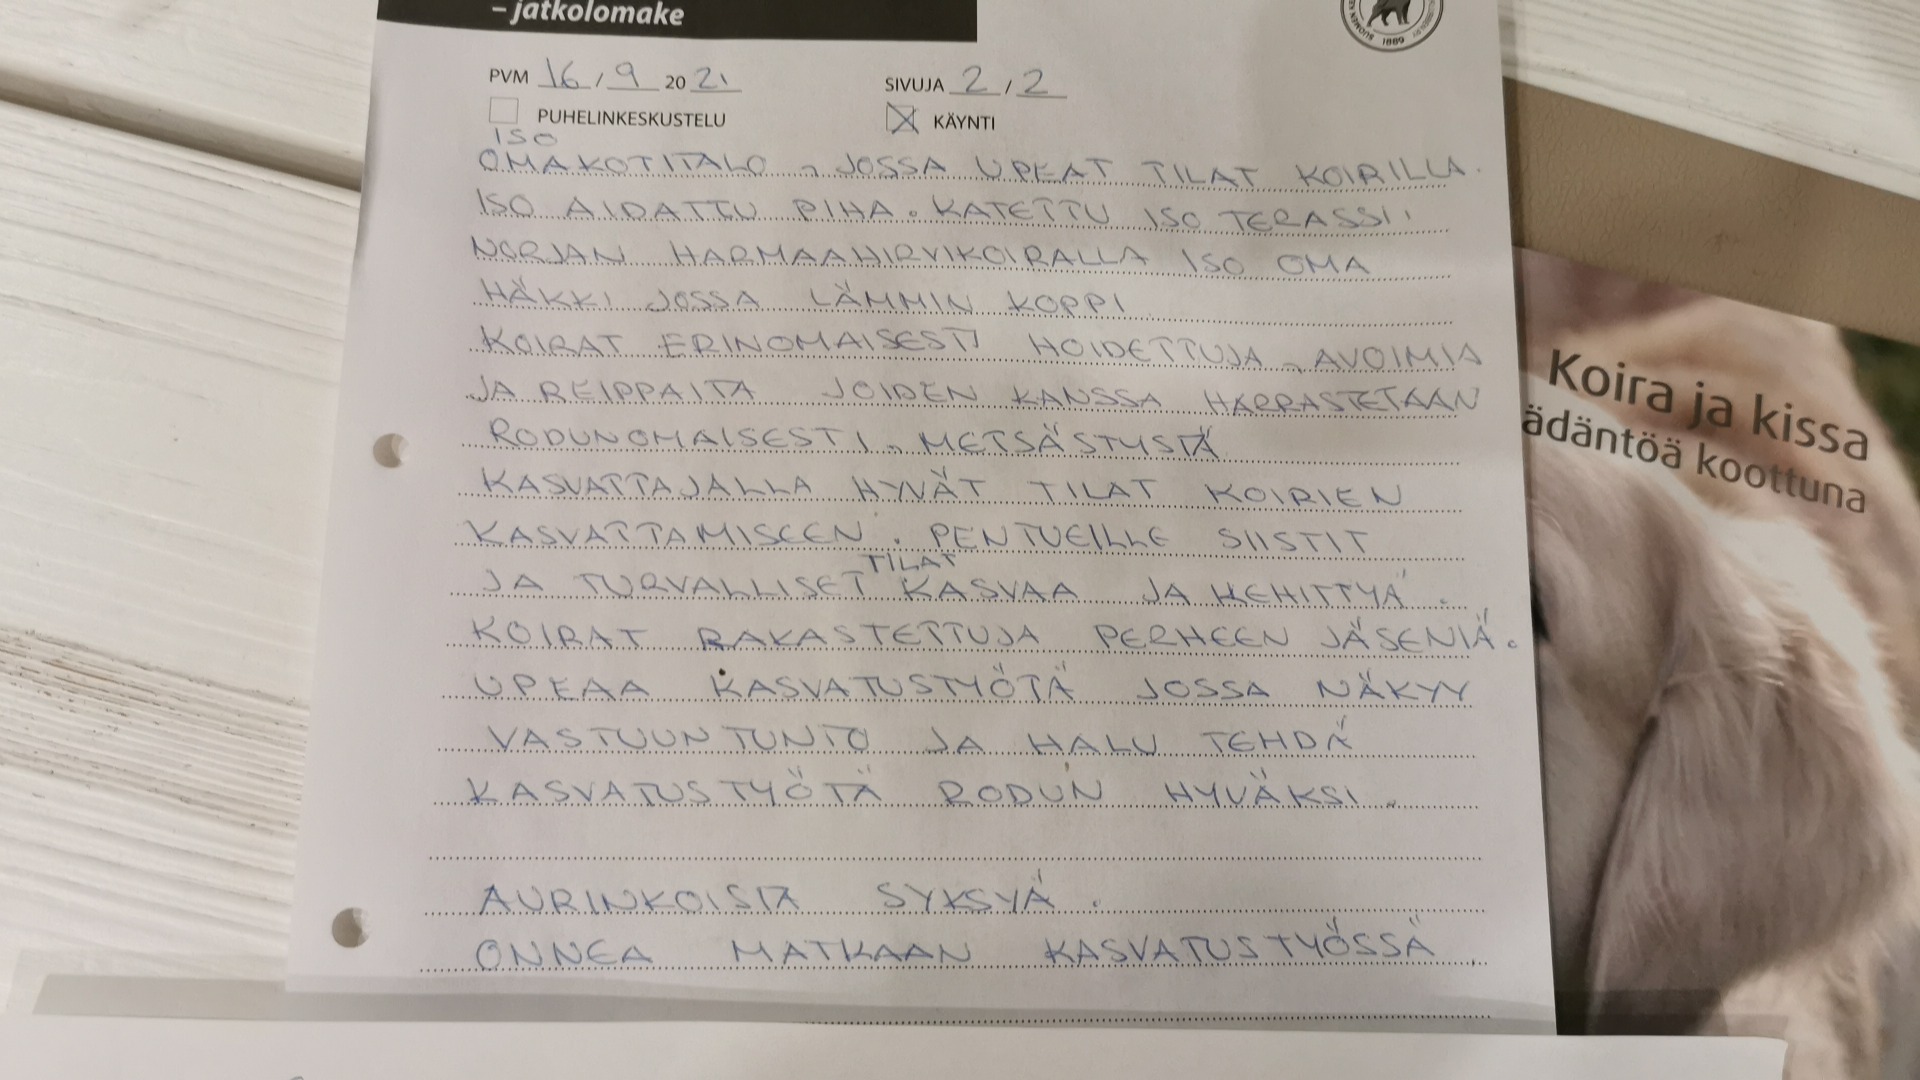 – jatkolomake
PVM 16 / 9 20 21 SIVUJA 2 / 2
PUHELINKESKUSTELU KÄYNTI
ISO
OMAKOTITALO, JOSSA UPEAT TILAT KOIRILLA.
ISO AIDATTU PIHA. KATETTU ISO TERASSI.
NORJAN HARMAAHIRVIKOIRALLA ISO OMA
HÄKKI JOSSA LÄMMIN KOPPI
KOIRAT ERINOMAISESTI HOIDETTUJA, AVOIMIA
JA REIPPAITA JOIDEN KANSSA HARRASTETAAN
RODUNOMAISESTI, METSÄSTYSTÄ
KASVATTAJALLA HYVÄT TILAT KOIRIEN
KASVATTAMISEEN. PENTUEILLE SIISTIT
TILAT
JA TURVALLISET KASVAA JA KEHITTYÄ.
KOIRAT RAKASTETTUJA PERHEEN JÄSENIÄ.
UPEAA KASVATUSTYÖTÄ JOSSA NÄKYY
VASTUUNTUNTO JA HALU TEHDÄ
KASVATUSTYÖTÄ RODUN HYVÄKSI.
AURINKOISTA SYKSYÄ.
ONNEA MATKAAN KASVATUSTYÖSSÄ.
1889
Koira ja kissa
ädäntöä koottuna